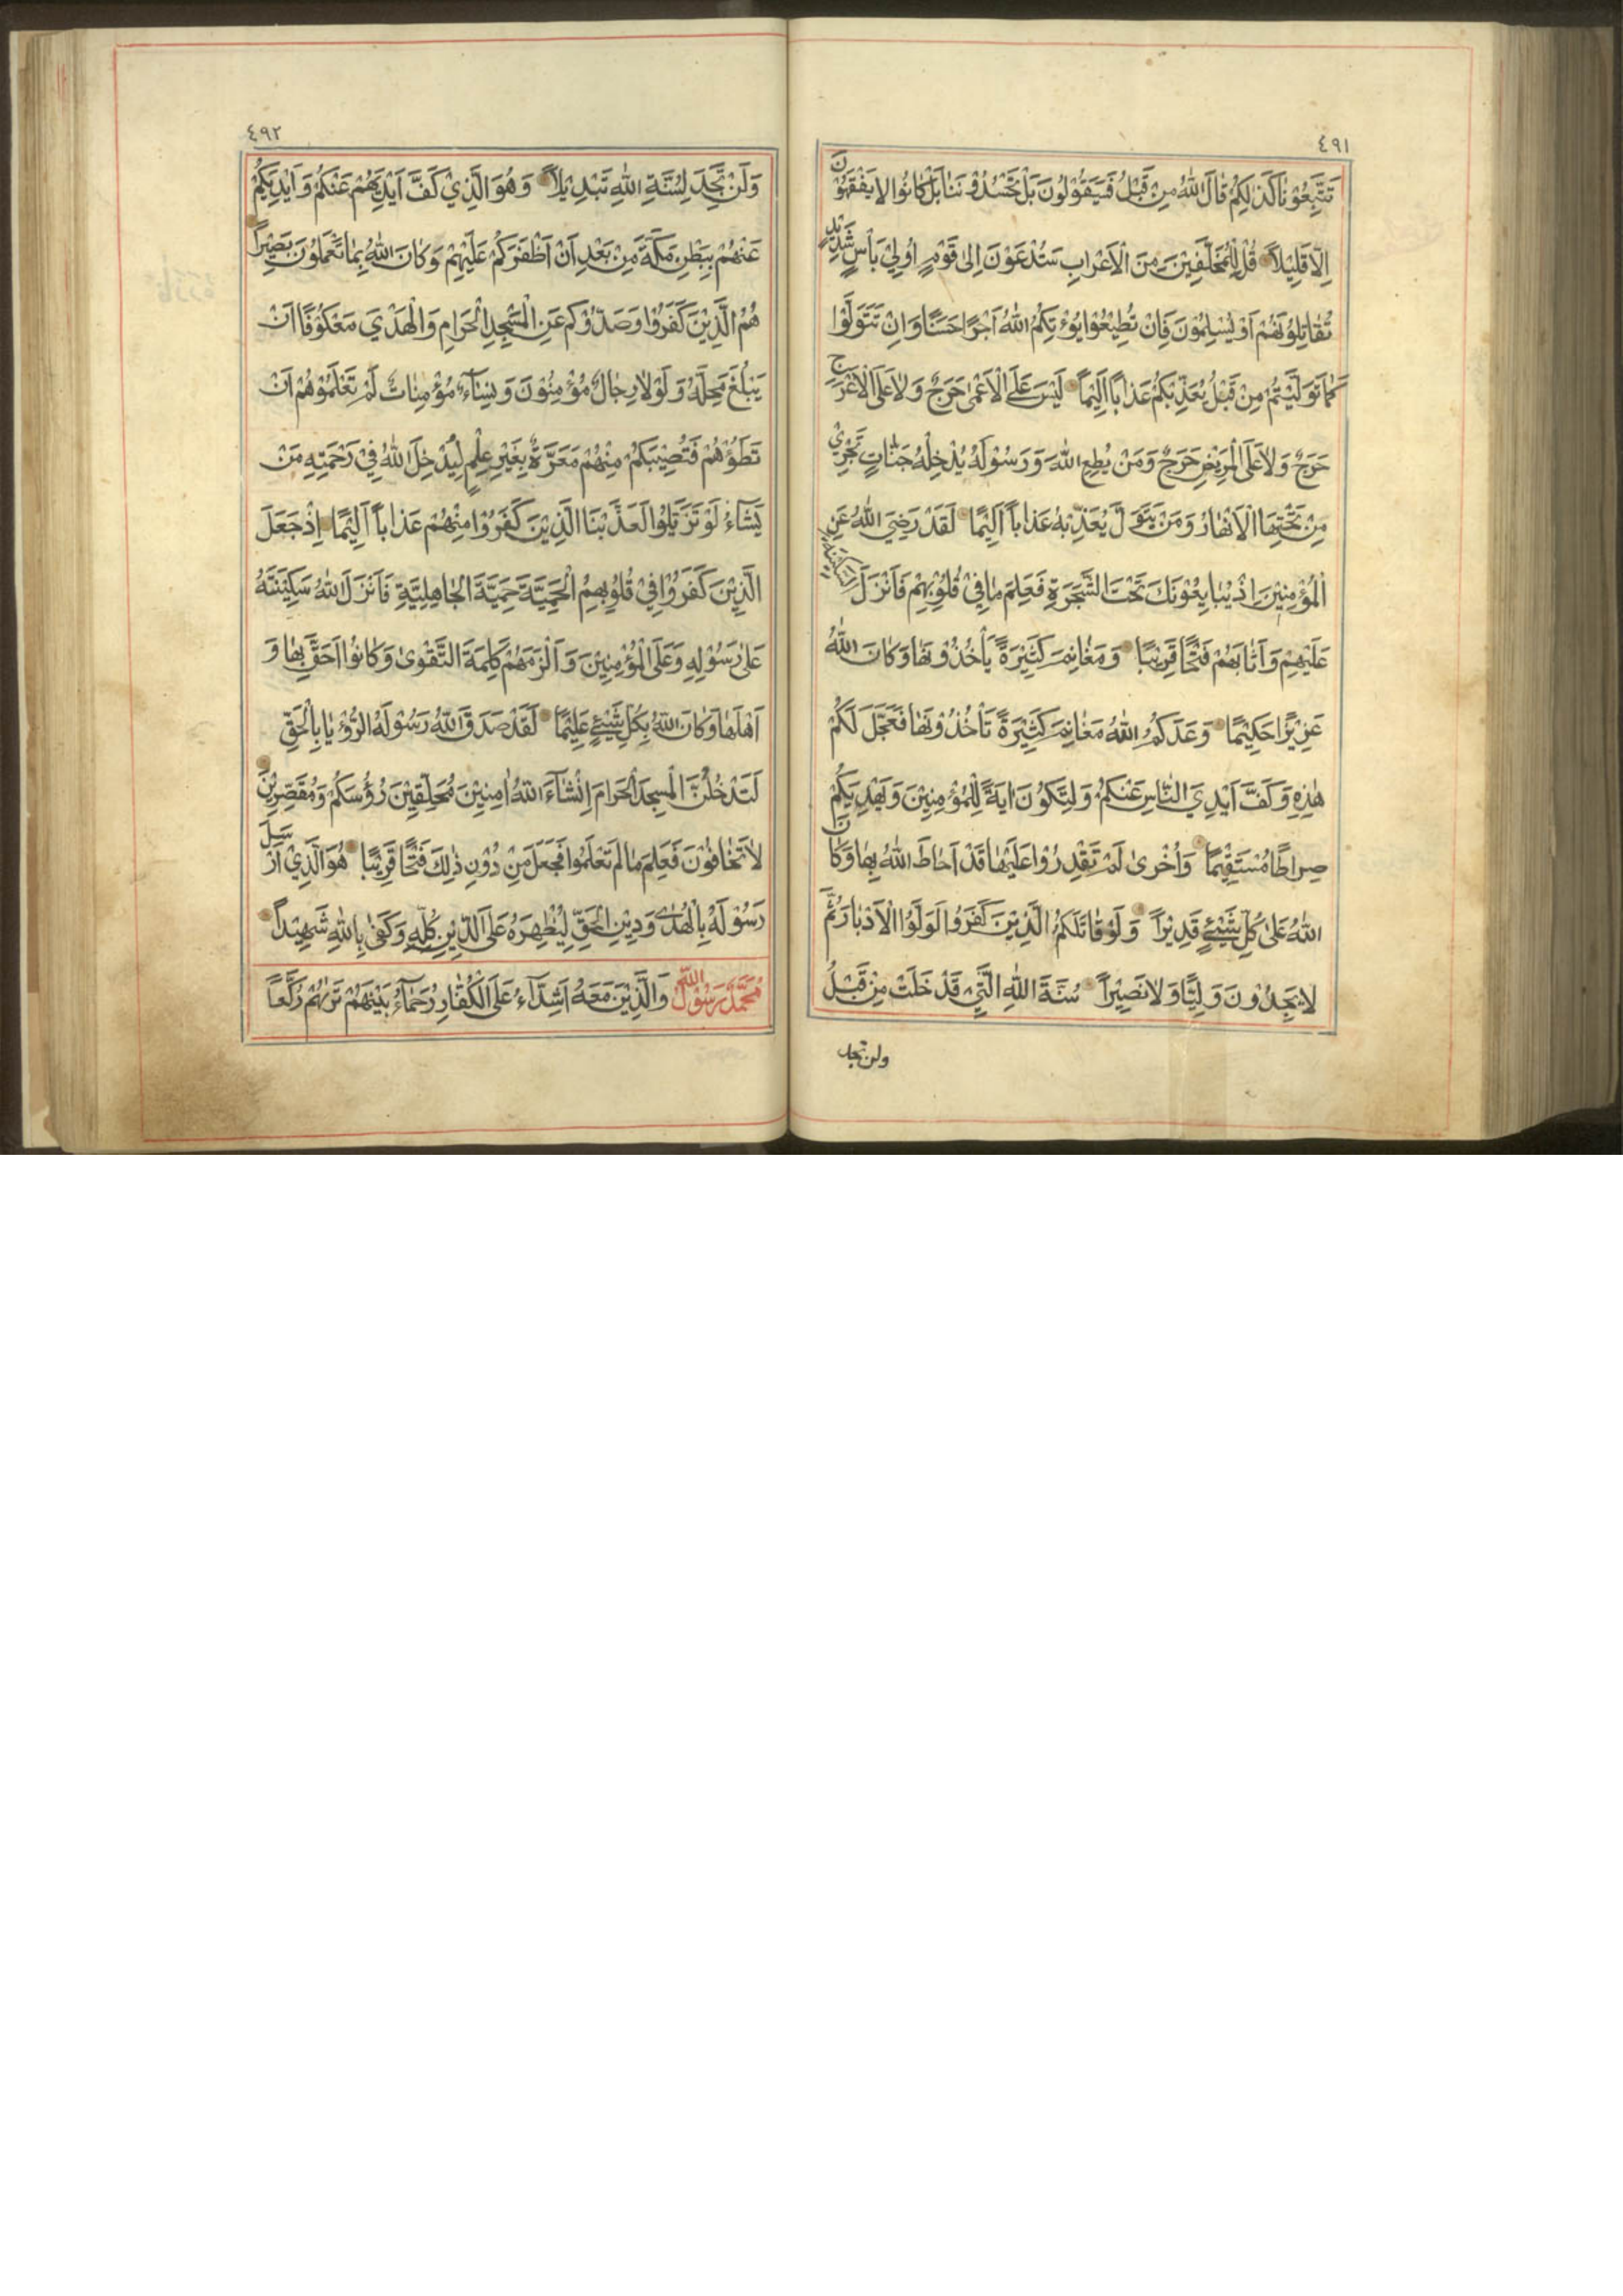 ٤٩١
تَتَّبِعُوْنَا كَذٰلِكُمْ قَالَ اللّٰهُ مِنْ قَبْلُ فَسَيَقُوْلُوْنَ بَلْ تَحْسُدُوْنَنَا بَلْ كَانُوا لَا يَفْقَهُوْنَ
اِلَّا قَلِيْلاً قُلْ لِلْمُخَلَّفِيْنَ مِنَ الْاَعْرَابِ سَتُدْعَوْنَ اِلٰى قَوْمٍ اُولِيْ بَأْسٍ شَدِيْدٍ
تُقَاتِلُوْنَهُمْ اَوْ يُسْلِمُوْنَ فَاِنْ تُطِيْعُوْا يُوْءْتِكُمُ اللّٰهُ اَجْرًا حَسَنًا وَاِنْ تَتَوَلَّوْا
كَمَا تَوَلَّيْتُمْ مِنْ قَبْلُ يُعَذِّبْكُمْ عَذَابًا اَلِيْمًا لَيْسَ عَلَى الْاَعْمٰى حَرَجٌ وَلَا عَلَى الْاَعْرَجِ
حَرَجٌ وَلَا عَلَى الْمَرِيْضِ حَرَجٌ وَمَنْ يُطِعِ اللّٰهَ وَرَسُوْلَهُ يُدْخِلْهُ جَنَّاتٍ تَجْرِيْ
مِنْ تَحْتِهَا الْاَنْهَارُ وَمَنْ يَتَوَلَّ يُعَذِّبْهُ عَذَاباً اَلِيْمًا لَقَدْ رَضِيَ اللّٰهُ عَنِ
الْمُؤْمِنِيْنَ اِذْ يُبَايِعُوْنَكَ تَحْتَ الشَّجَرَةِ فَعَلِمَ مَا فِيْ قُلُوْبِهِمْ فَاَنْزَلَ السَّكِيْنَةَ
عَلَيْهِمْ وَاَثَابَهُمْ فَتْحًا قَرِيْبًا وَمَغَانِمَ كَثِيْرَةً يَأْخُذُوْنَهَا وَكَانَ اللّٰهُ
عَزِيْزًا حَكِيْمًا وَعَدَكُمُ اللّٰهُ مَغَانِمَ كَثِيْرَةً تَأْخُذُوْنَهَا فَعَجَّلَ لَكُمْ
هٰذِهِ وَكَفَّ اَيْدِيَ النَّاسِ عَنْكُمْ وَلِتَكُوْنَ اٰيَةً لِلْمُؤْمِنِيْنَ وَيَهْدِيَكُمْ
صِرَاطًا مُسْتَقِيْمًا وَاُخْرٰى لَمْ تَقْدِرُوْا عَلَيْهَا قَدْ اَحَاطَ اللّٰهُ بِهَا وَكَانَ
اللّٰهُ عَلٰى كُلِّ شَيْئٍ قَدِيْرًا وَلَوْ قَاتَلَكُمُ الَّذِيْنَ كَفَرُوا لَوَلَّوُا الْاَدْبَارَ ثُمَّ
لَا يَجِدُوْنَ وَلِيًّا وَلَا نَصِيْرًا سُنَّةَ اللّٰهِ الَّتِيْ قَدْ خَلَتْ مِنْ قَبْلُ
ولن تجد
٤٩٢
وَلَنْ تَجِدَ لِسُنَّةِ اللّٰهِ تَبْدِيْلاً وَهُوَ الَّذِيْ كَفَّ اَيْدِيَهُمْ عَنْكُمْ وَاَيْدِيَكُمْ
عَنْهُمْ بِبَطْنِ مَكَّةَ مِنْ بَعْدِ اَنْ اَظْفَرَكُمْ عَلَيْهِمْ وَكَانَ اللّٰهُ بِمَا تَعْمَلُوْنَ بَصِيْرًا
هُمُ الَّذِيْنَ كَفَرُوْا وَصَدُّوْكُمْ عَنِ الْمَسْجِدِ الْحَرَامِ وَالْهَدْيَ مَعْكُوْفًا اَنْ
يَبْلُغَ مَحِلَّهُ وَلَوْلَا رِجَالٌ مُؤْمِنُوْنَ وَنِسَآءٌ مُؤْمِنَاتٌ لَمْ تَعْلَمُوْهُمْ اَنْ
تَطَؤُهُمْ فَتُصِيْبَكُمْ مِنْهُمْ مَعَرَّةٌ بِغَيْرِ عِلْمٍ لِيُدْخِلَ اللّٰهُ فِيْ رَحْمَتِهِ مَنْ
يَشَآءُ لَوْ تَزَيَّلُوا لَعَذَّبْنَا الَّذِيْنَ كَفَرُوْا مِنْهُمْ عَذَاباً اَلِيْمًا اِذْ جَعَلَ
الَّذِيْنَ كَفَرُوْا فِيْ قُلُوْبِهِمُ الْحَمِيَّةَ حَمِيَّةَ الْجَاهِلِيَّةِ فَاَنْزَلَ اللّٰهُ سَكِيْنَتَهُ
عَلٰى رَسُوْلِهِ وَعَلَى الْمُؤْمِنِيْنَ وَاَلْزَمَهُمْ كَلِمَةَ التَّقْوٰى وَكَانُوْا اَحَقَّ بِهَا وَ
اَهْلَهَا وَكَانَ اللّٰهُ بِكُلِّ شَيْئٍ عَلِيْمًا لَقَدْ صَدَقَ اللّٰهُ رَسُوْلَهُ الرُّؤْيَا بِالْحَقِّ
لَتَدْخُلُنَّ الْمَسْجِدَ الْحَرَامَ اِنْشَآءَ اللّٰهُ اٰمِنِيْنَ مُحَلِّقِيْنَ رُؤُسَكُمْ وَمُقَصِّرِيْنَ
لَا تَخَافُوْنَ فَعَلِمَ مَا لَمْ تَعْلَمُوْا فَجَعَلَ مِنْ دُوْنِ ذٰلِكَ فَتْحًا قَرِيْبًا هُوَ الَّذِيْ اَرْسَلَ
رَسُوْلَهُ بِالْهُدٰى وَدِيْنِ الْحَقِّ لِيُظْهِرَهُ عَلَى الدِّيْنِ كُلِّهِ وَكَفٰى بِاللّٰهِ شَهِيْدًا
مُحَمَّدٌ رَسُوْلُ اللّٰهِ وَالَّذِيْنَ مَعَهُ اَشِدَّآءُ عَلَى الْكُفَّارِ رُحَمَآءُ بَيْنَهُمْ تَرٰىهُمْ رُكَّعًا